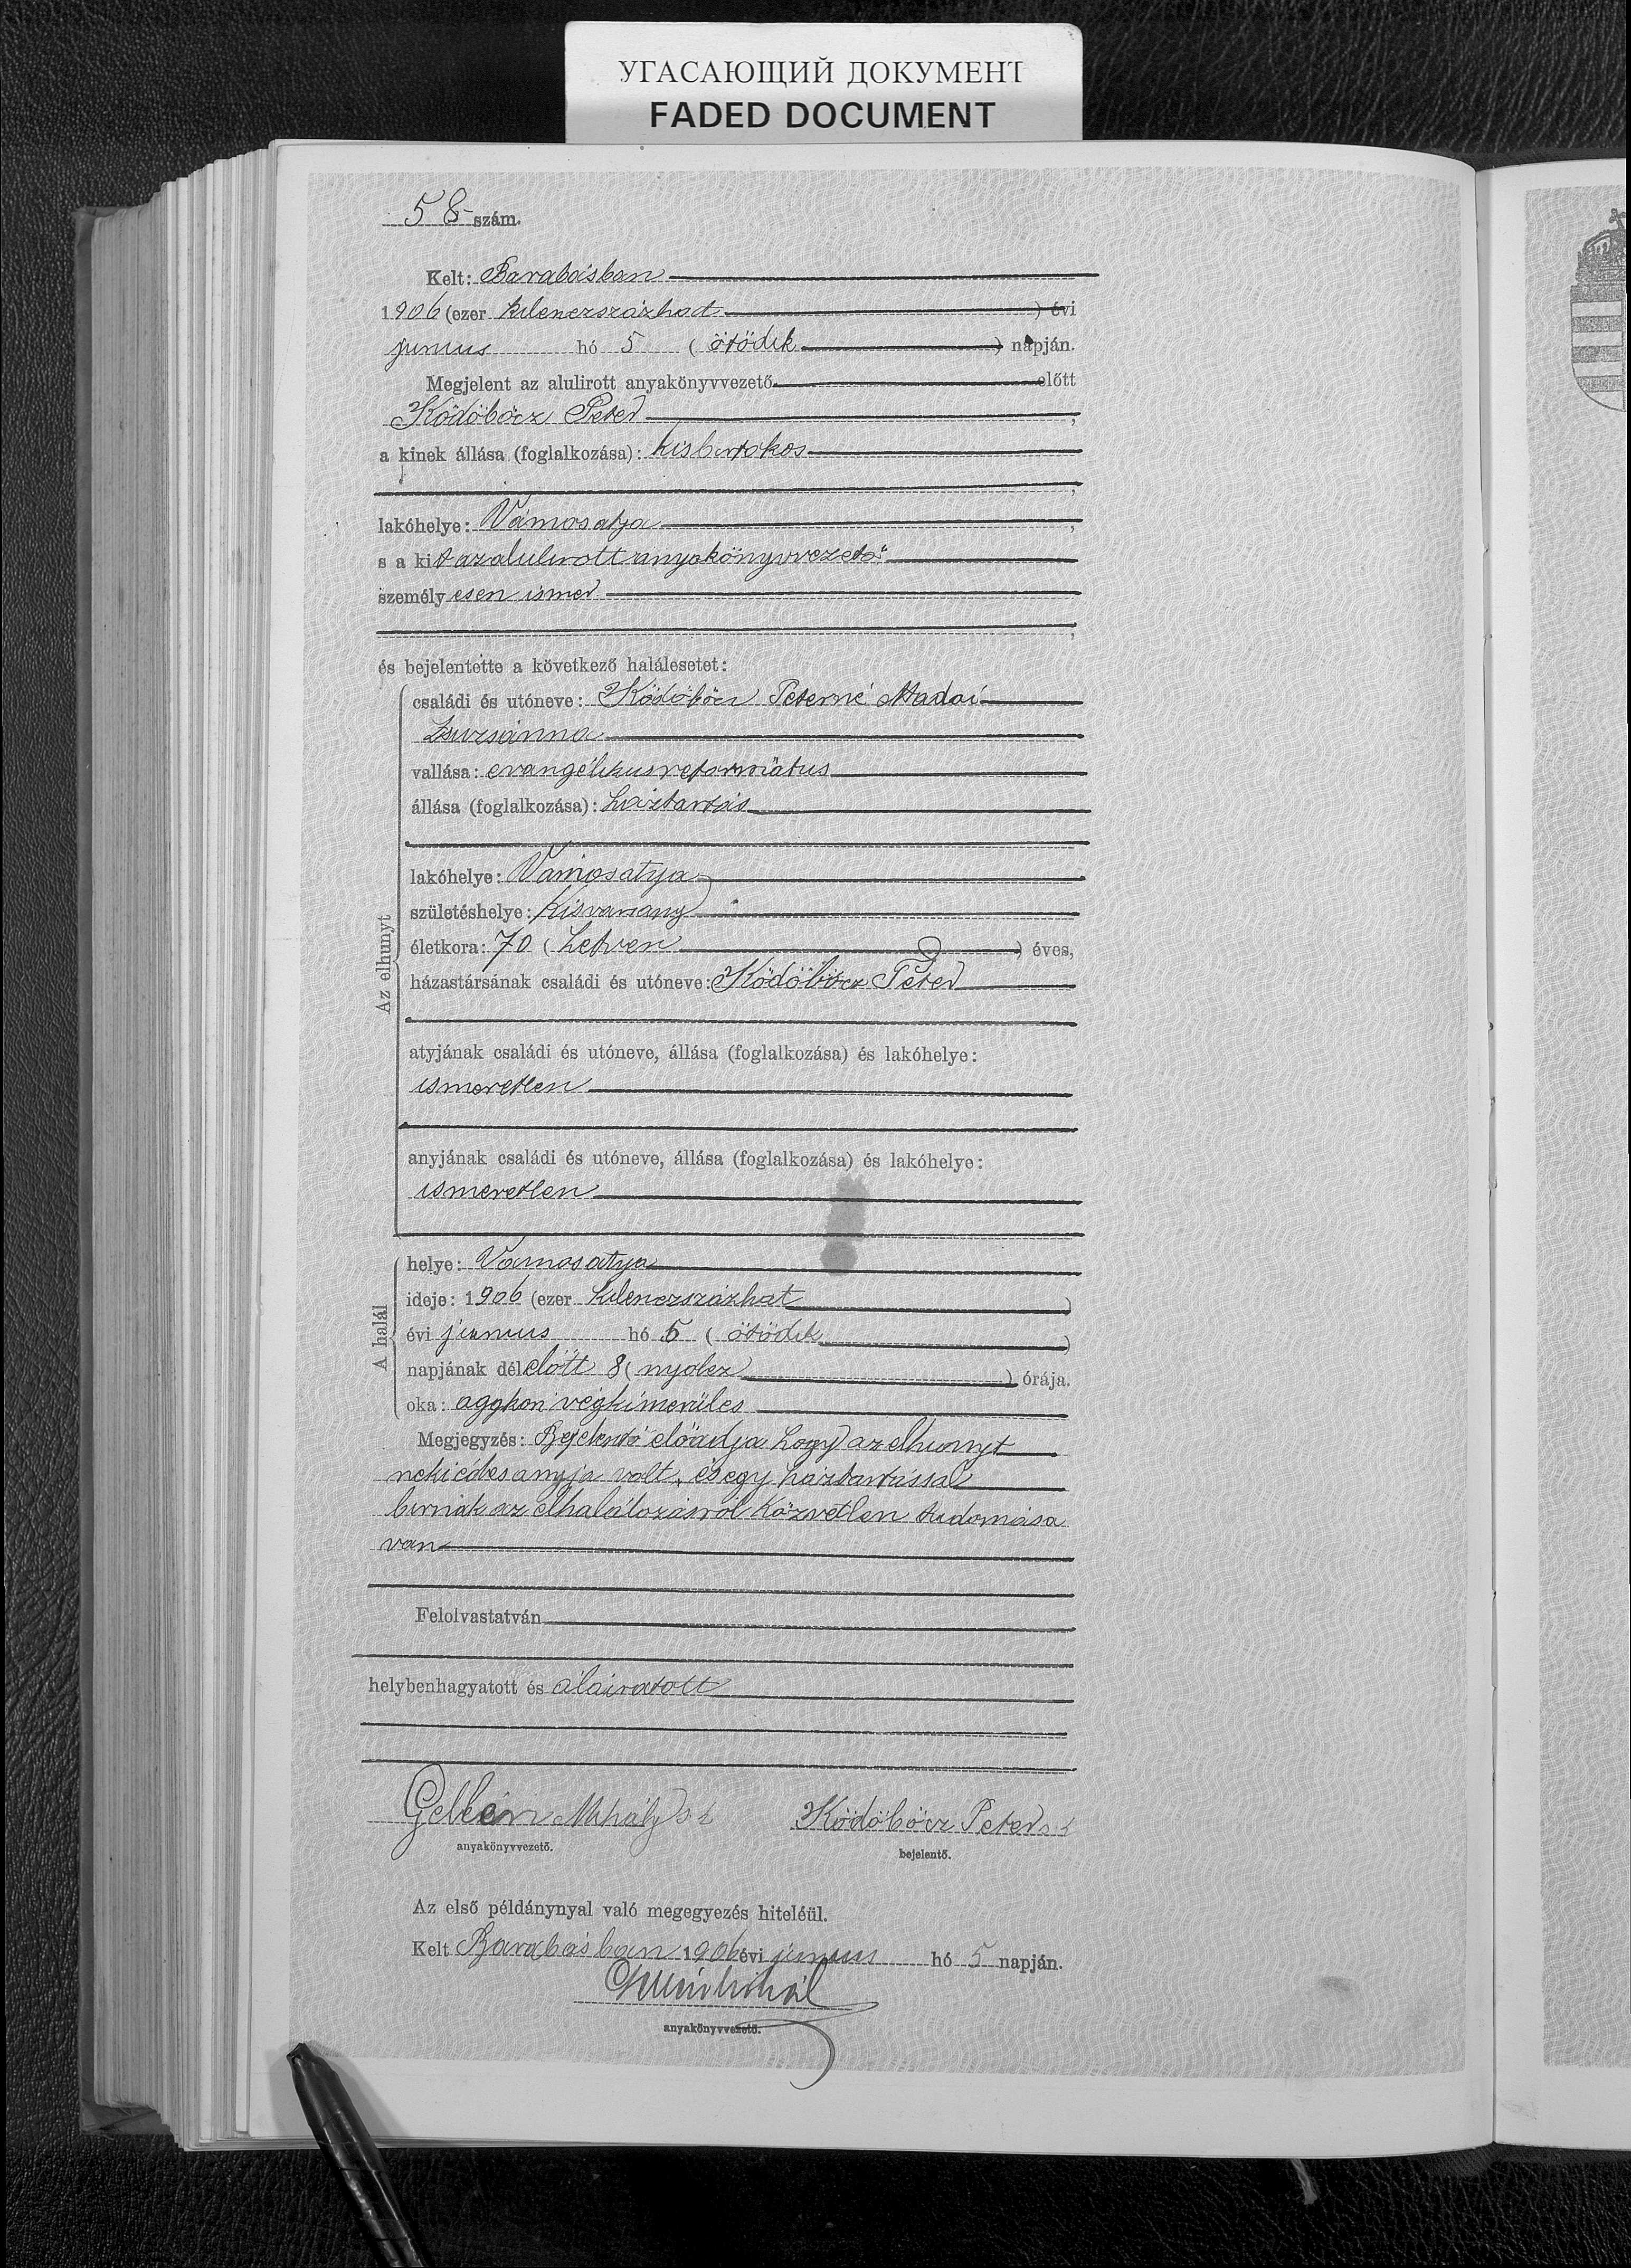 УГАСАЮЩИЙ ДОКУМЕНТ
FADED DOCUMENT
58 szám.
Kelt: Barabásban
1906 (ezer kilenczszázhat ) évi
junius hó 5 ( ötödik ) napján.
Megjelent az alulirott anyakönyvvezető előtt
Ködöböcz Péter ,
a kinek állása (foglalkozása): kisbirtokos
,
lakóhelye: Vámosatya ,
s a kit az alulirott anyakönyvvezető
személyesen ismer
,
és bejelentette a következő halálesetet:
Az elhunyt
családi és utóneve: Ködöböcz Péterné Madai
Zsuzsánna
vallása: evangélikus református
állása (foglalkozása): háztartás
lakóhelye: Vámosatya
születéshelye: Kisvarsány
életkora: 70 ( hetven ) éves,
házastársának családi és utóneve: Ködöböcz Péter
atyjának családi és utóneve, állása (foglalkozása) és lakóhelye:
ismeretlen
anyjának családi és utóneve, állása (foglalkozása) és lakóhelye:
ismeretlen
A halál
helye: Vámosatya
ideje: 1906 (ezer kilenczszázhat )
évi junius hó 5 ( ötödik )
napjának délelőtt 8 ( nyolcz ) órája.
oka: aggkori végkimerülés
Megjegyzés: Bejelentő előadja hogy az elhunyt
neki édes anyja volt, és egy háztartással
birnak az elhalálozásról közvetlen tudomása
van
Felolvastatván
helybenhagyatott és aláiratott
Gellén Mihály s k
anyakönyvvezető.
Ködöböcz Péter s k
bejelentő.
Az első példánynyal való megegyezés hiteléül.
Kelt Barabásban 1906 évi junius hó 5 napján.
anyakönyvvezető.